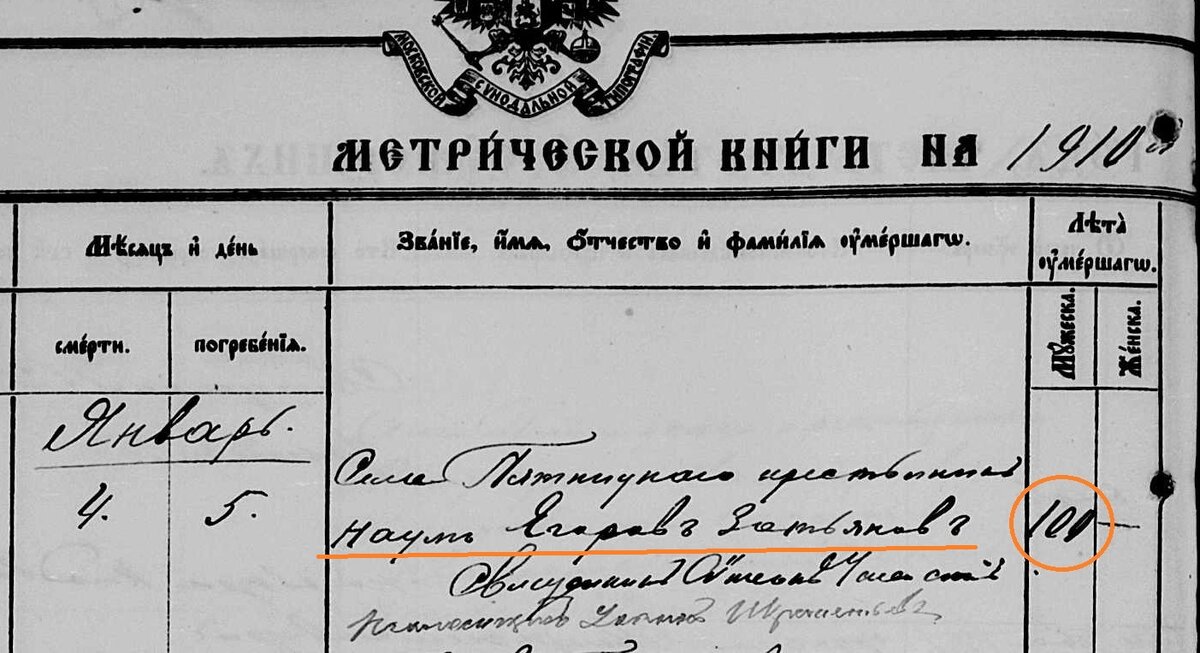 МОСКОВСКОЙ СѴНОДАЛЬНОЙ ТИПОГРАФІИ.
МЕТРИ́ЧЕСКОЙ КНИ́ГИ НА 1910
Мѣ́сяцъ и҆ де́нь
Зва́нїе, и҆́мѧ, ѻ҆́тчество и҆ фами́лїѧ ᲂу҆ме́ршагѡ.
Лѣ́та̀ ᲂу҆ме́ршагѡ.
сме́рти.
погребе́нїѧ.
Мꙋ́жеска.
Же́нска.
Январь.
Села Пятницкаго крестьянинъ
4. 5. Наумъ Егоровъ Затьяковъ 100 —
Священникъ